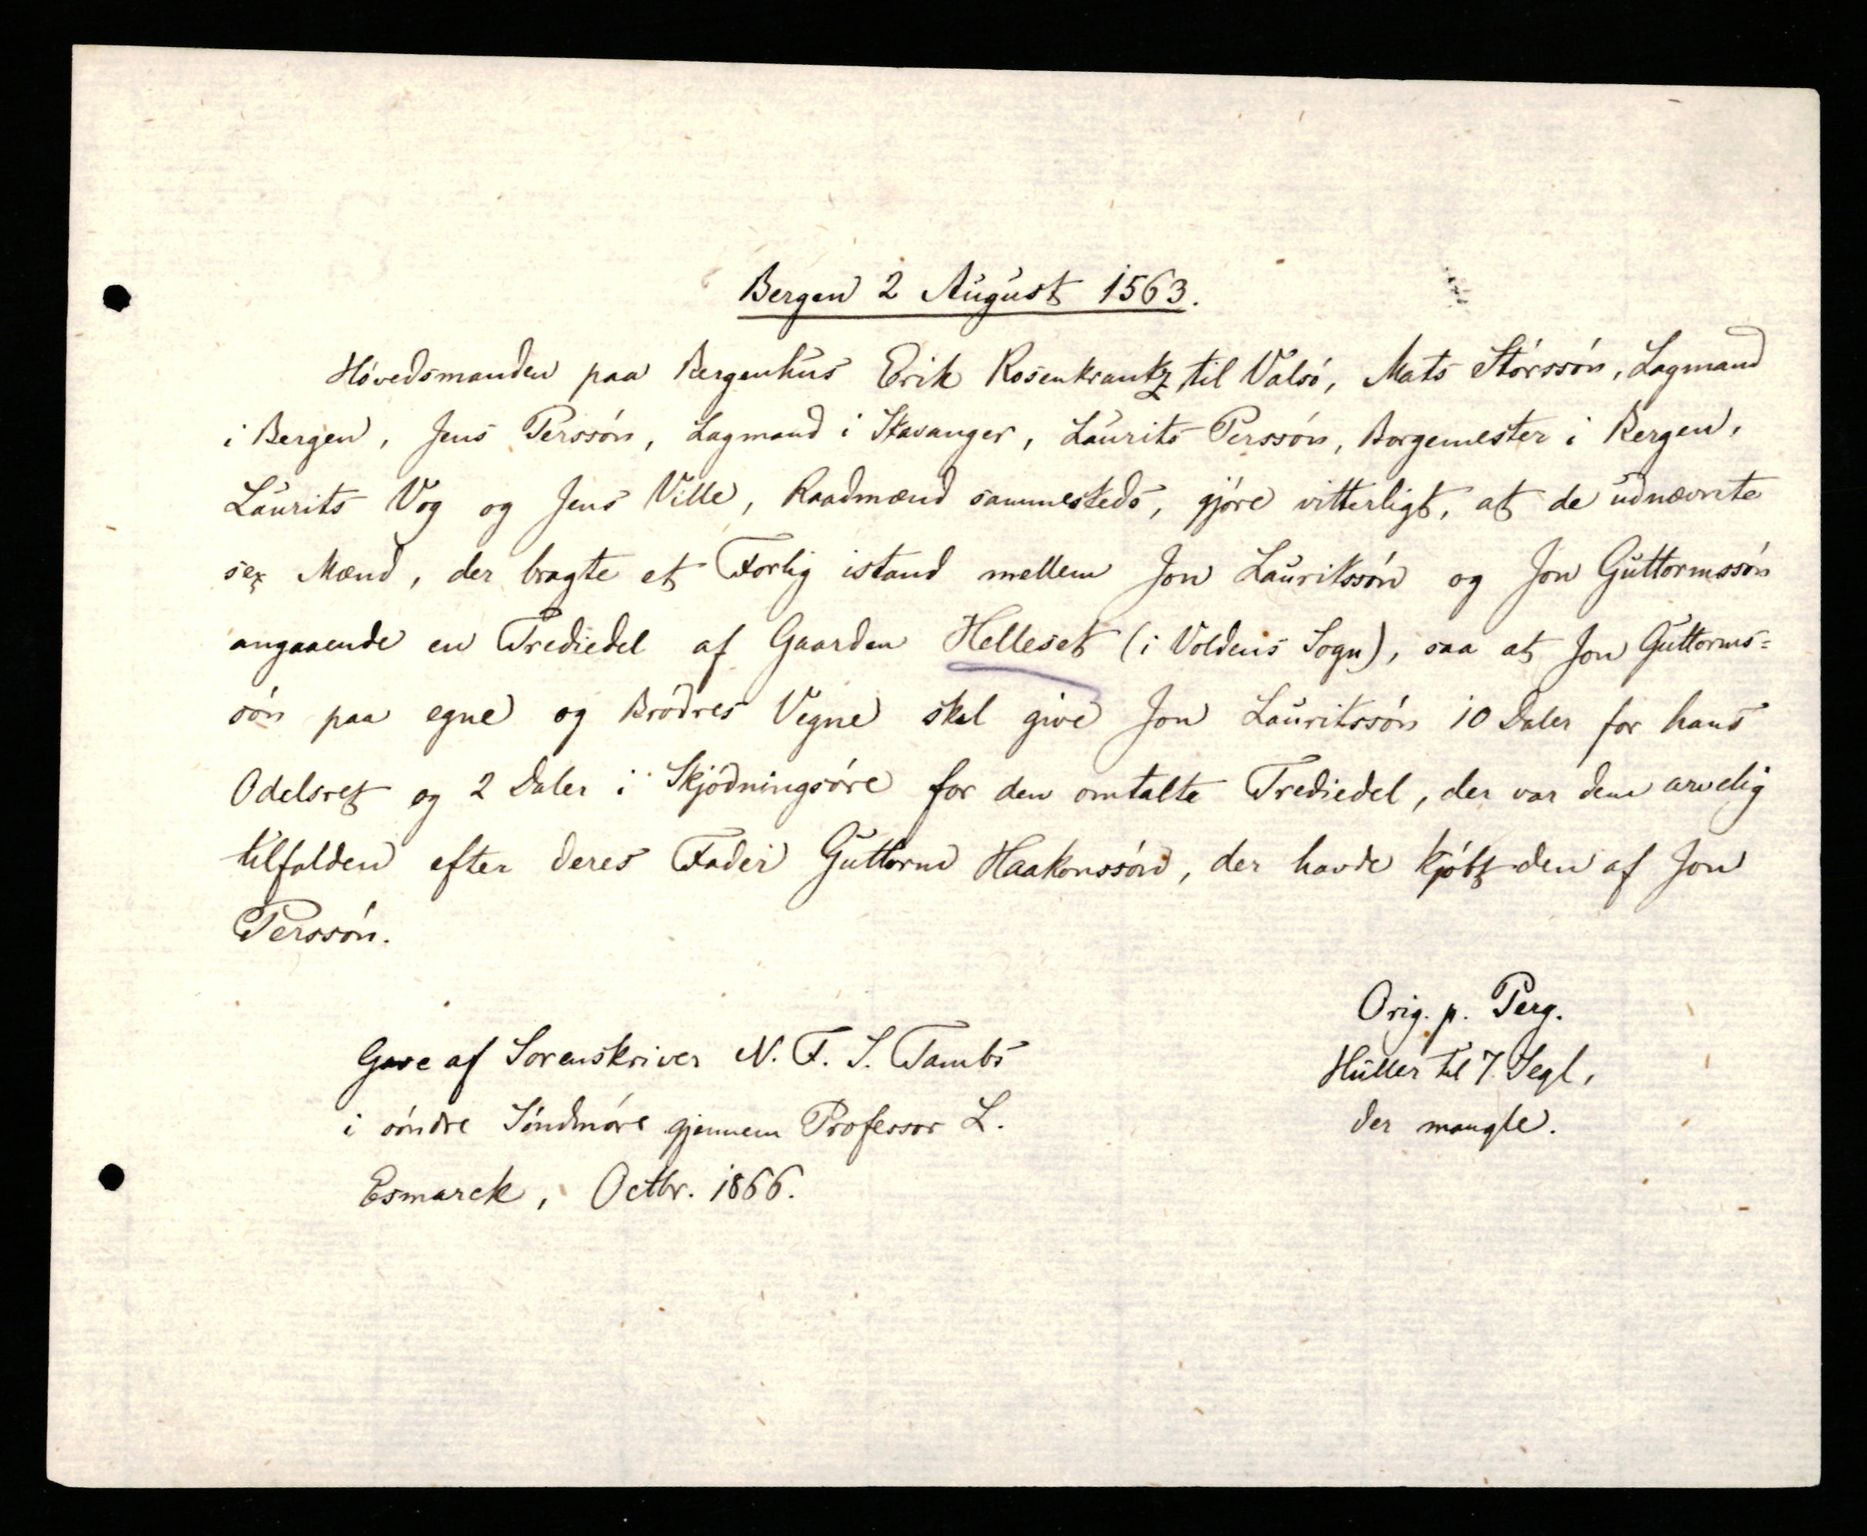 Bergen 2 August 1563.
Hóvedsmanden paa Bergenhus Erik Rosenkrantz til Valsó, Mats Stórssón, Lagmand
i Bergen, Jens Perssón, Lagmand i Stavanger, Laurits Perssón, Borgemester i Bergen,
Laurits Vog og Jens Ville, Raadmænd sammesteds, gjóre vitterligt, at de udnævnte
sex Mænd, der bragte et Forlig istand mellem Jon Lauritssón og Jon Guttormssón
angaaende en Trediedel af Gaarden Helleset (i Voldens Sogn), saa at Jon Guttorms=
són paa egne og Bródres Vegne skal give Jon Lauritssón 10 Daler for hans
Odelsret og 2 Daler i Skjódningsóre for den omtalte Trediedel, der var dem arvelig
tilfalden efter deres Fader Guttorm Haakonssón, der havde kjóbt den af Jon
Perssón.
Orig. p. Perg.
Huller til 7 Segl,
der mangle.
Gave af Sorenskriver N. F. S. Tambs
i sóndre Sóndmóre gjennem Professor L.
Esmarck, Octbr. 1866.